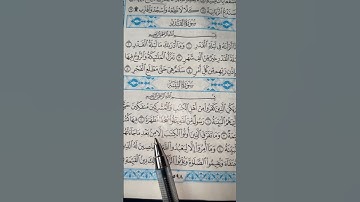 كَلَّا لَا تُطِعْهُ وَاسْجُدْ وَاقْتَرِب ۩
سُورَةُ القَدْرِ
بِسْمِ اللَّهِ الرَّحْمَٰنِ الرَّحِيمِ
فِي لَيْلَةِ الْقَدْرِ ۝ وَمَا أَدْرَىٰكَ مَا لَيْلَةُ الْقَدْرِ ۝
الْقَدْرِ خَيْرٌ مِّنْ أَلْفِ شَهْرٍ ۝ تَنَزَّلُ الْمَلَٰٓئِكَةُ وَالرُّوحُ فِيهَا
رَبِّهِم مِّن كُلِّ أَمْرٍ ۝ سَلَٰمٌ هِيَ حَتَّىٰ مَطْلَعِ الْفَجْرِ ۝
سُورَةُ البَيِّنَةِ
بِسْمِ اللَّهِ الرَّحْمَٰنِ الرَّحِيمِ
يَكُنِ الَّذِينَ كَفَرُوا مِنْ أَهْلِ الْكِتَٰبِ وَالْمُشْرِكِينَ مُنفَكِّينَ
الْبَيِّنَةُ ۝ رَسُولٌ مِّنَ اللَّهِ يَتْلُوا صُحُفًا مُّطَهَّرَةً ۝ فِيهَا
وَمَا تَفَرَّقَ الَّذِينَ أُوتُوا الْكِتَٰبَ إِلَّا مِن بَعْدِ مَا جَاءَتْهُمُ
وَمَا أُمِرُوا إِلَّا لِيَعْبُدُوا اللَّهَ مُخْلِصِينَ لَهُ
وَيُقِيمُوا الصَّلَوٰةَ وَيُؤْتُوا الزَّكَوٰةَ وَذَٰلِكَ دِينُ الْقَيِّمَةِ